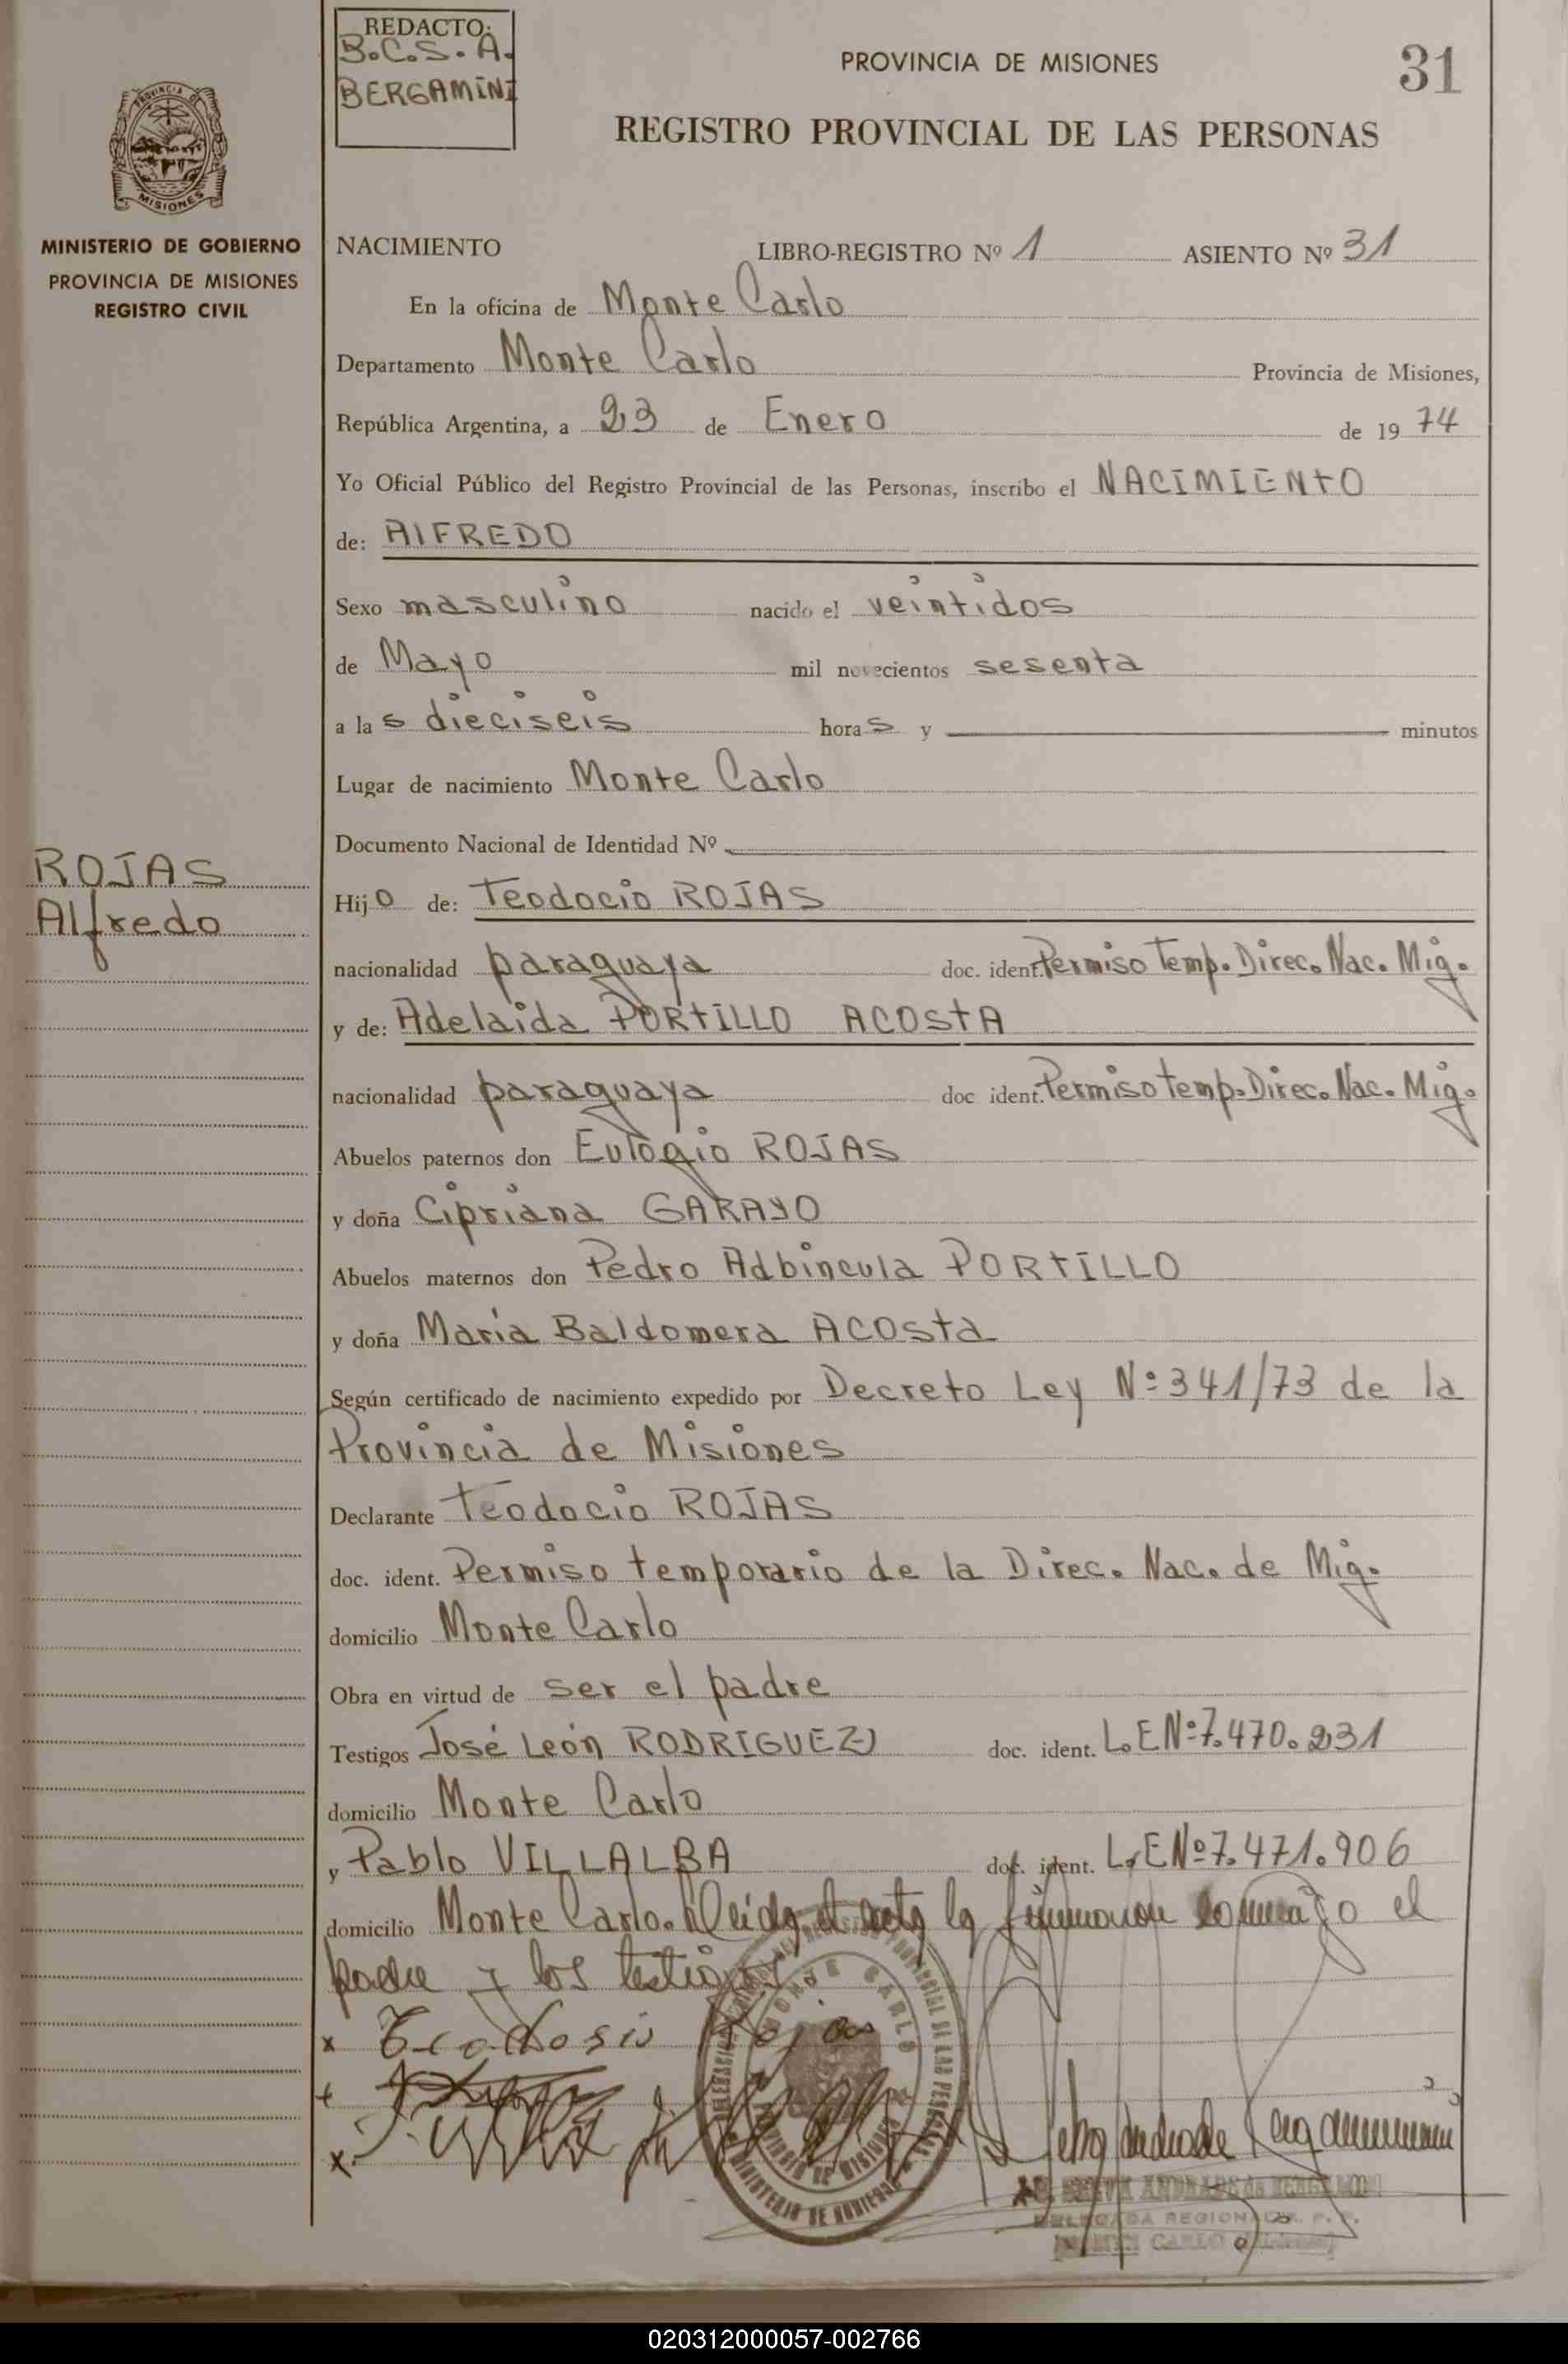 REDACTO:
B.C.S.A.
BERGAMINI
PROVINCIA DE MISIONES
31
REGISTRO PROVINCIAL DE LAS PERSONAS
PROVINCIA DE
MISIONES
MINISTERIO DE GOBIERNO
PROVINCIA DE MISIONES
REGISTRO CIVIL
NACIMIENTO LIBRO-REGISTRO Nº 1 ASIENTO Nº 31
En la oficina de Monte Carlo
Departamento Monte Carlo Provincia de Misiones,
República Argentina, a 23 de Enero de 1974
Yo Oficial Público del Registro Provincial de las Personas, inscribo el NACIMIENTO
de: AlFREDO
Sexo masculino nacido el veintidos
de Mayo mil novecientos sesenta
a las dieciseis horas y minutos
Lugar de nacimiento Monte Carlo
Documento Nacional de Identidad Nº
ROJAS
Alfredo
Hijo de: Teodocio ROJAS
nacionalidad paraguaya doc. ident. Permiso Temp. Direc. Nac. Mig.
y de: Adelaida PORTILLO ACOSTA
nacionalidad paraguaya doc ident. Permiso temp. Direc. Nac. Mig.
Abuelos paternos don Eulogio ROJAS
y doña Cipriana GARAYO
Abuelos maternos don Pedro Adbincula PORTILLO
y doña María Baldomera ACOSta
Según certificado de nacimiento expedido por Decreto Ley Nº 341/73 de la
Provincia de Misiones
Declarante Teodocio ROJAS
doc. ident. Permiso temporario de la Direc. Nac. de Mig.
domicilio Monte Carlo
Obra en virtud de ser el padre
Testigos José León RODRIGUEZ doc. ident. L.E Nº 7.470.231
domicilio Monte Carlo
y Pablo VILLALBA doc. ident. L.E Nº 7.471.906
domicilio Monte Carlo. Leida el acta la firmaron conmigo el
padre y los testigos
x Teodosio Rojas
MONTE CARLO
PROVINCIA DE MISIONES
MINISTERIO DE GOBIERNO
ANDRADE de BERGAMINI
DELEGADA REGIONAL R. P. P.
CARLO
020312000057-002766